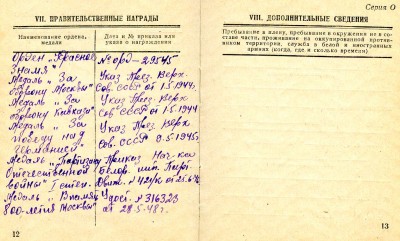 Серия О
VII. ПРАВИТЕЛЬСТВЕННЫЕ НАГРАДЫ
Наименование ордена, медали
Дата и № приказа или указа о награждении
Орден „Красное Знамя"
№ орд-29545
Медаль „За оборону Москвы"
Указ През. Верх Сов. СССР от 1.5.1944
Медаль „За оборону Кавказа"
Указ През. Верх Сов. СССР от 1.5.1944
Медаль „За победу над Германией"
Указ През. Верх Сов. СССР 9.5.1945
Медаль „Партизану Отечественной войны" I степ.
Приказ Нач-ка Белор. шт. Парт. Движ.
Медаль „В память 800-летия Москвы"
Удост. № 316323 от 28.5.48г.
12
VIII. ДОПОЛНИТЕЛЬНЫЕ СВЕДЕНИЯ
Пребывание в плену, пребывание в окружении не в
составе части, проживание на оккупированной против-
ником территории, служба в белой и иностранных
армиях (когда, где и сколько времени)
13